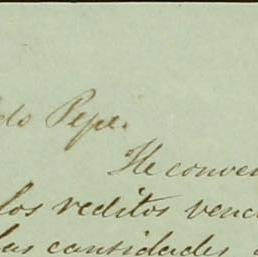 do Pepe.
He conven
los reditos venc
las cantidades